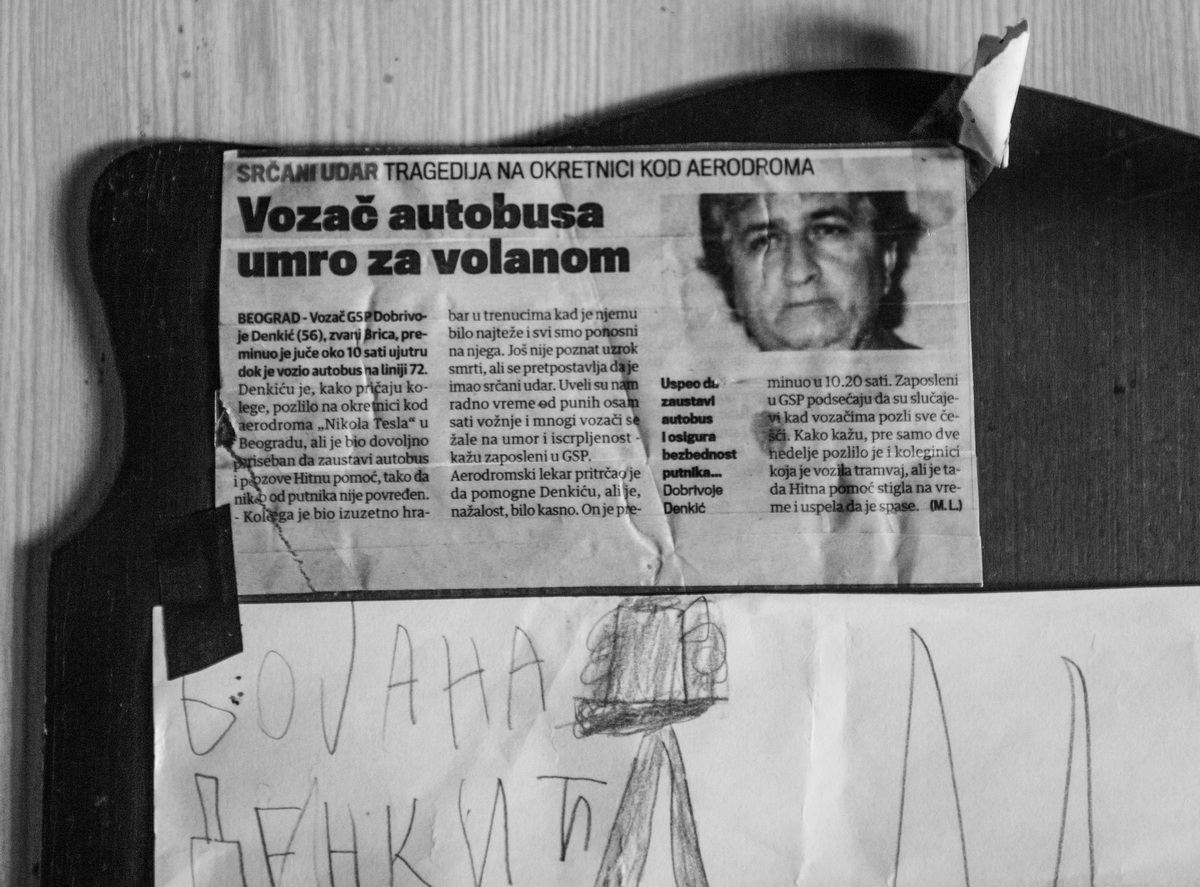 SRČANI UDAR TRAGEDIJA NA OKRETNICI KOD AERODROMA
Vozač autobusa
umro za volanom
BEOGRAD - Vozač GSP Dobrivo-
je Denkić (56), zvani Brica, pre-
minuo je juče oko 10 sati ujutru
dok je vozio autobus na liniji 72.
Denkiću je, kako pričaju ko-
lege, pozlilo na okretnici kod
aerodroma „Nikola Tesla“ u
Beogradu, ali je bio dovoljno
priseban da zaustavi autobus
i pozove Hitnu pomoć, tako da
niko od putnika nije povređen.
- Kolega je bio izuzetno hra-
bar u trenucima kad je njemu
bilo najteže i svi smo ponosni
na njega. Još nije poznat uzrok
smrti, ali se pretpostavlja da je
imao srčani udar. Uveli su nam
radno vreme od punih osam
sati vožnje i mnogi vozači se
žale na umor i iscrpljenost -
kažu zaposleni u GSP.
Aerodromski lekar pritrčao je
da pomogne Denkiću, ali je,
nažalost, bilo kasno. On je pre-
minuo u 10.20 sati. Zaposleni
u GSP podsećaju da su slučaje-
vi kad vozačima pozli sve če-
šći. Kako kažu, pre samo dve
nedelje pozlilo je i koleginici
koja je vozila tramvaj, ali je ta-
da Hitna pomoć stigla na vre-
me i uspela da je spase. (M. L.)
Uspeo da
zaustavi
autobus
i osigura
bezbednost
putnika...
Dobrivoje
Denkić
БОЈАНА
ДЕНКИЋ